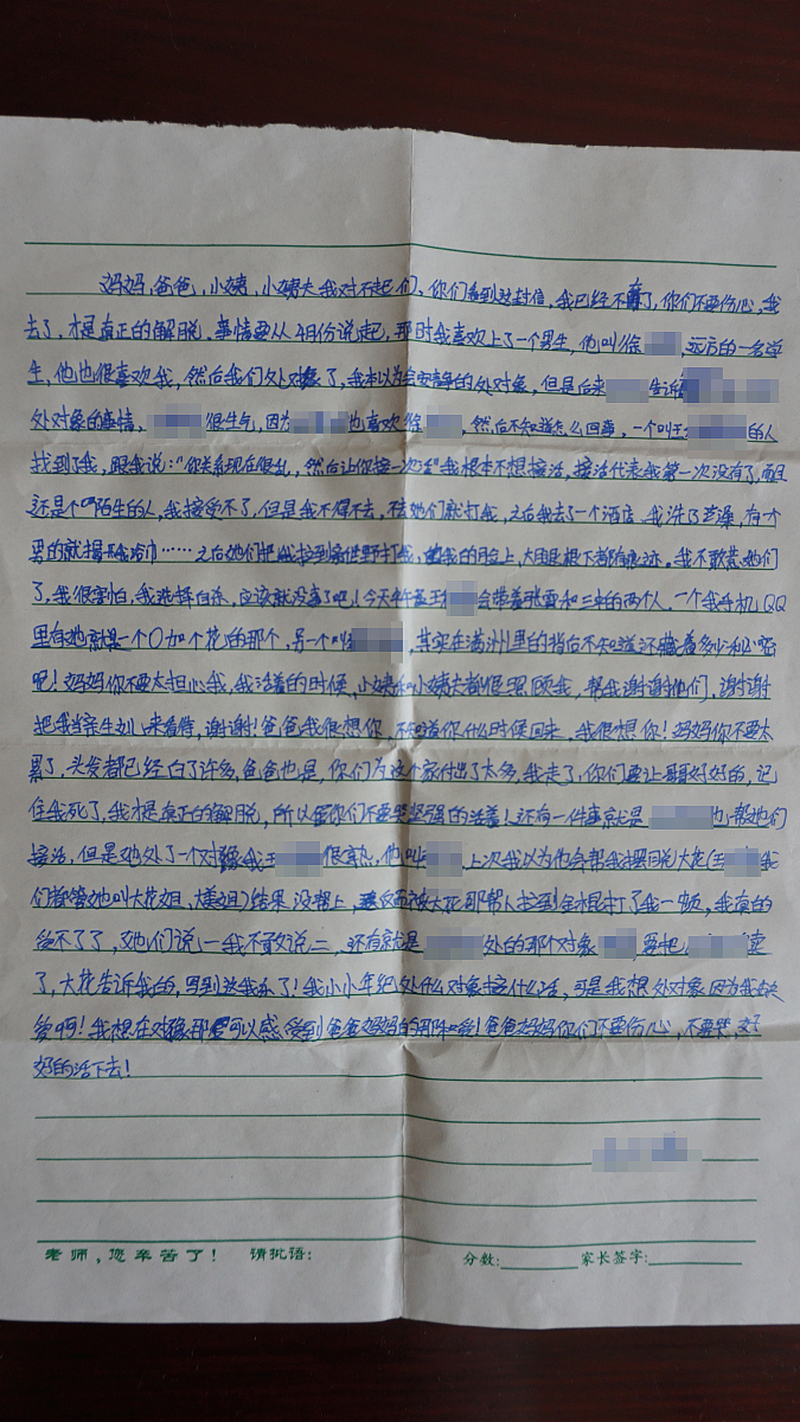 妈妈,爸爸,小姨,小姨夫我对不起们,你们看到这封信,我已经不在了,你们不要伤心,我
去了,才是真正的解脱。事情要从4月份说起,那时我喜欢上了一个男生,他叫徐,远方的一名学
生,他也很喜欢我,然后我们处对象了,我本以为会安安静静的处对象,但是后来告诉
处对象的事情,很生气,因为也喜欢徐,然后不知道怎么回事,一个叫王的人
找到了我,跟我说:"你关系现在很乱,然后让你接一次活"我根本不想接活,接活代表我第一次没有了,而且
还是个陌生的人,我接受不了,但是我不得不去,不去她们就打我,之后我去了一个酒店,我洗了芝澡,有个
男的就揭开我浴巾……之后她们把我拉到打我,我的脸上,大腿根下都有痕迹。我不敢惹她们
了,我很害怕,我选择自杀,应该就没事了吧!今天中午王会带着张雪和三中的两个人,一个我手机QQ
里有她就是一个O加个花的那个,另一个叫,其实在满洲里的背后不知道还藏着多少秘密
吧!妈妈你不要太担心我,我活着的时候,小姨和小姨夫都很照顾我,帮我谢谢他们,谢谢
把我当亲生女儿来看待,谢谢!爸爸我很想你,不知道你什么时候回来,我很想你!妈妈你不要太
累了,头发都已经白了许多,爸爸也是,你们为这个家付出了太多,我走了,你们要让哥哥好好的,记
住我死了,我才是真正的解脱,所以你们不要哭坚强的活着!还有一件事就是也帮她们
接活,但是她处了一个对象我王很熟,他叫,上次我以为他会帮我摆脱大花(王我
们都管她叫大花姐、大美姐)结果没帮上,反而被大花那帮人拉到金棍打了我一顿,我真的
受不了了,她们说一我不敢说二,还有就是处的那个对象,要把卖
了,大花告诉我的,写到这我哭了!我小小年纪处什么对象接什么活,可是我想处对象因为我缺
爱啊!我想在对象那里可以感受到爸爸妈妈的那种爱!爸爸妈妈你们不要伤心,不要哭,好
好的活下去!
老师,您辛苦了! 请批语: 分数: 家长签字: